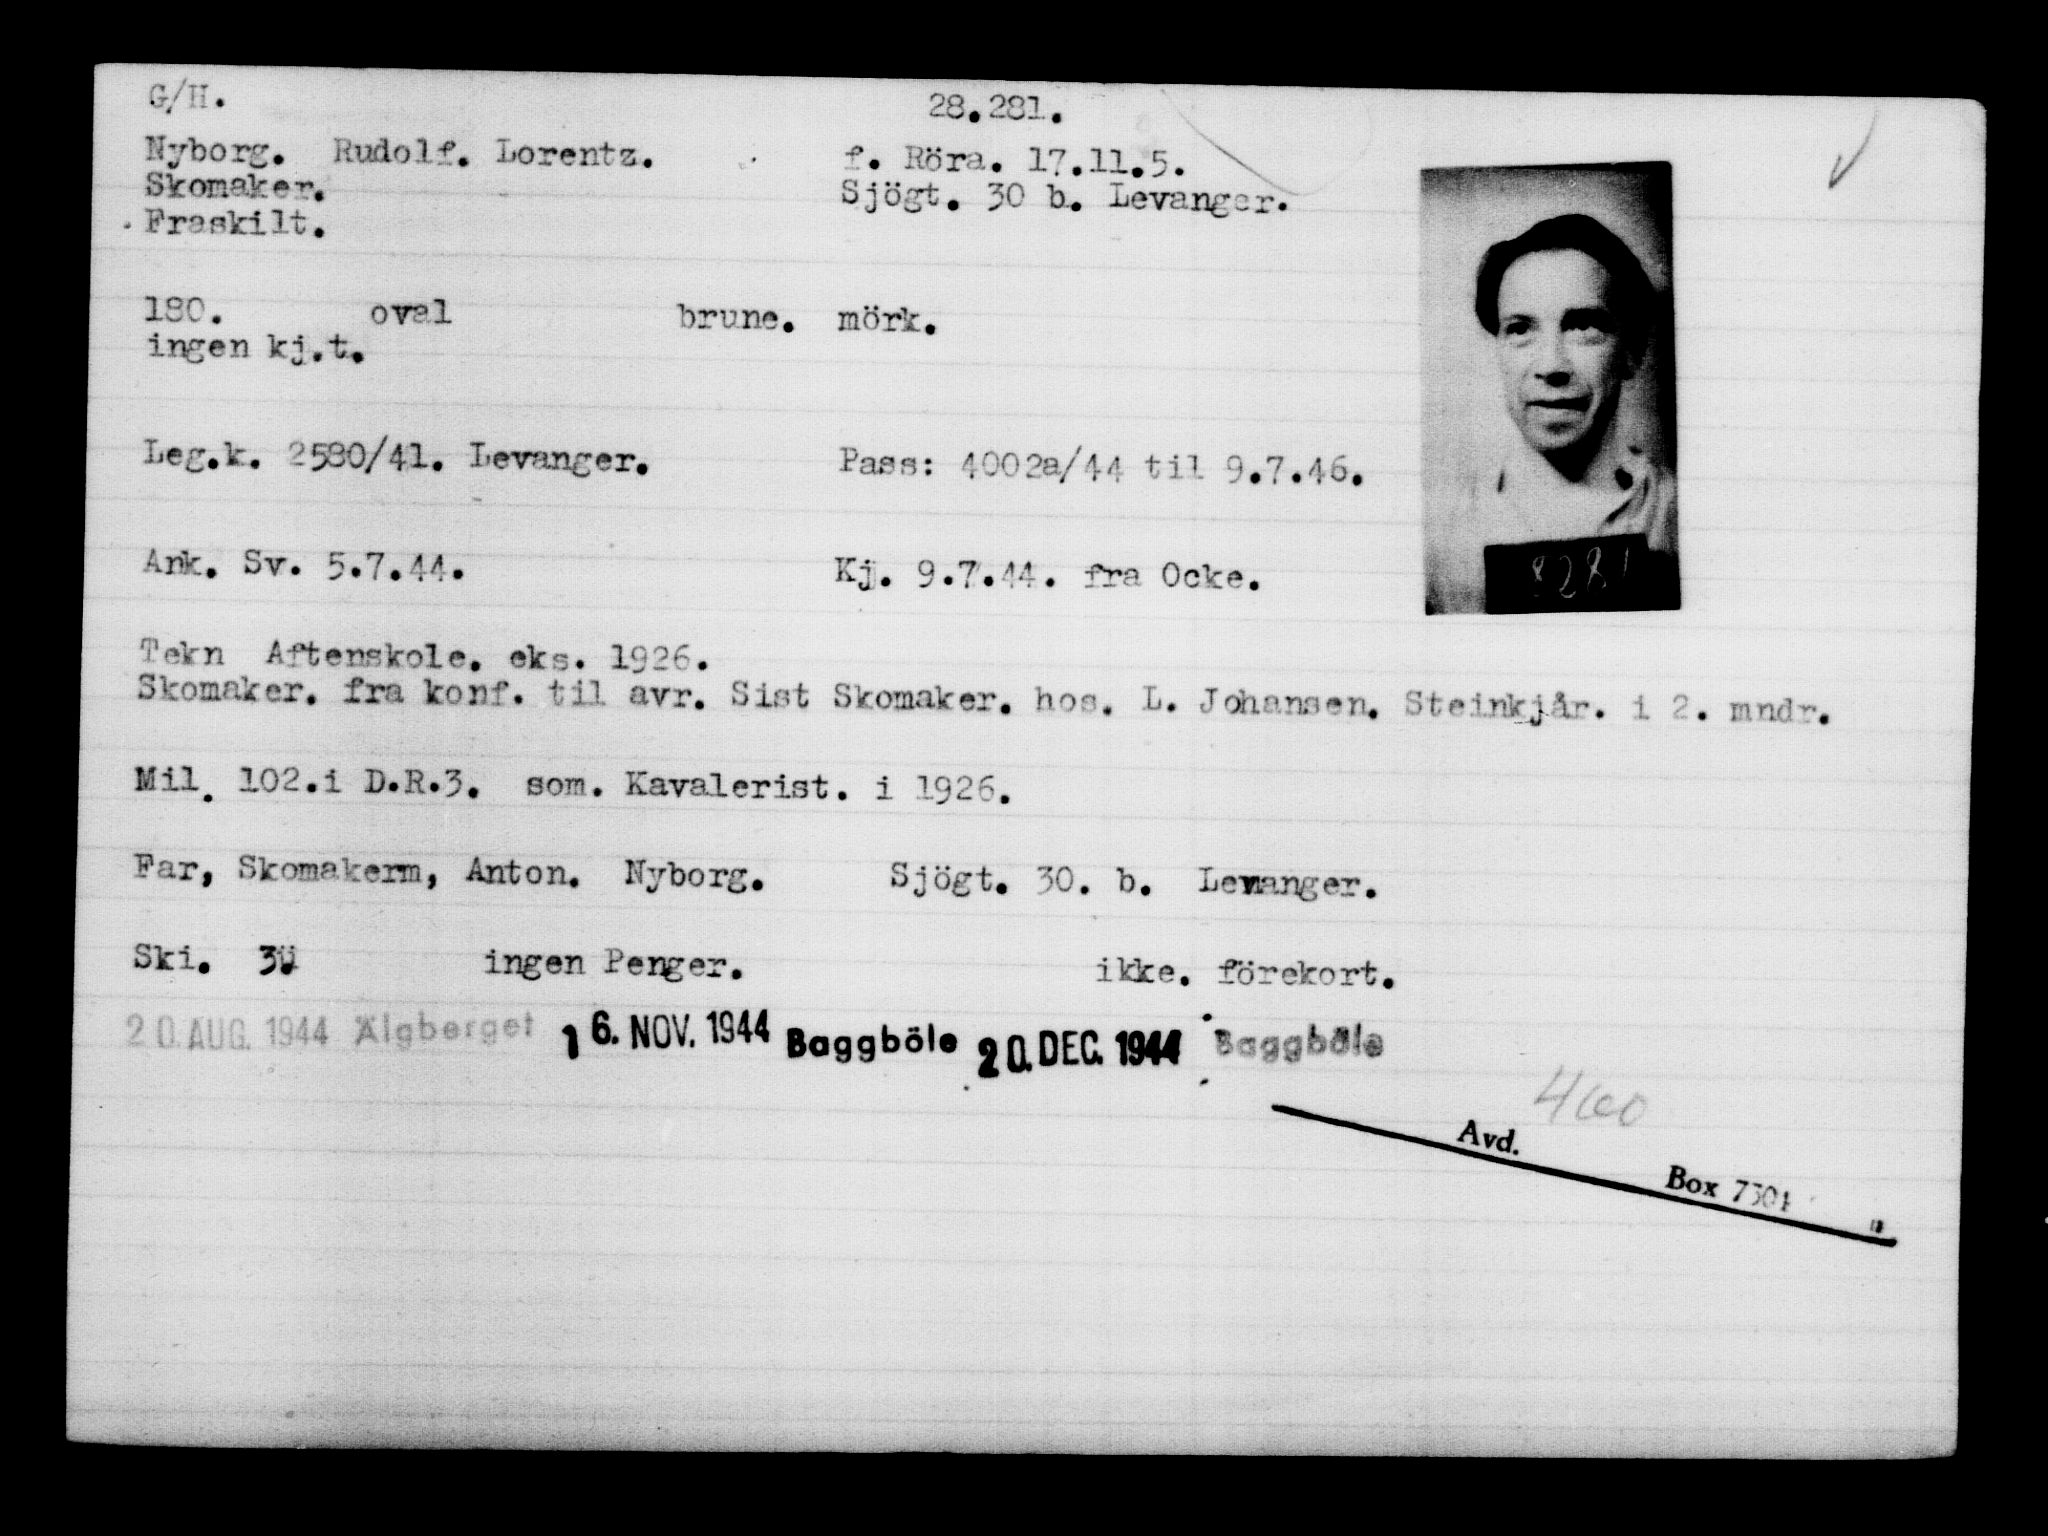 G/H. 28.281.
Nyborg. Rudolf. Lorentz. f. Röra. 17.11.5.
Skomaker. Sjögt. 30 b. Levanger.
Fraskilt.
180. oval brune. mörk.
ingen kj.t.
Leg.k. 2580/41. Levanger. Pass: 4002a/44 til 9.7.46.
Ank. Sv. 5.7.44. Kj. 9.7.44. fra Ocke.
8281
Tekn Aftenskole. eks. 1926.
Skomaker. fra konf. til avr. Sist Skomaker. hos. L. Johansen. Steinkjår. i 2. mndr.
Mil. 102.i D.R.3. som. Kavalerist. i 1926.
Far, Skomakerm, Anton. Nyborg. Sjögt. 30. b. Levanger.
Ski. ingen Penger. ikke. förekort.
20. AUG. 1944 Älgberget 16. NOV. 1944 Baggböle 20. DEC. 1944 Baggböle
Avd.
Box 7301